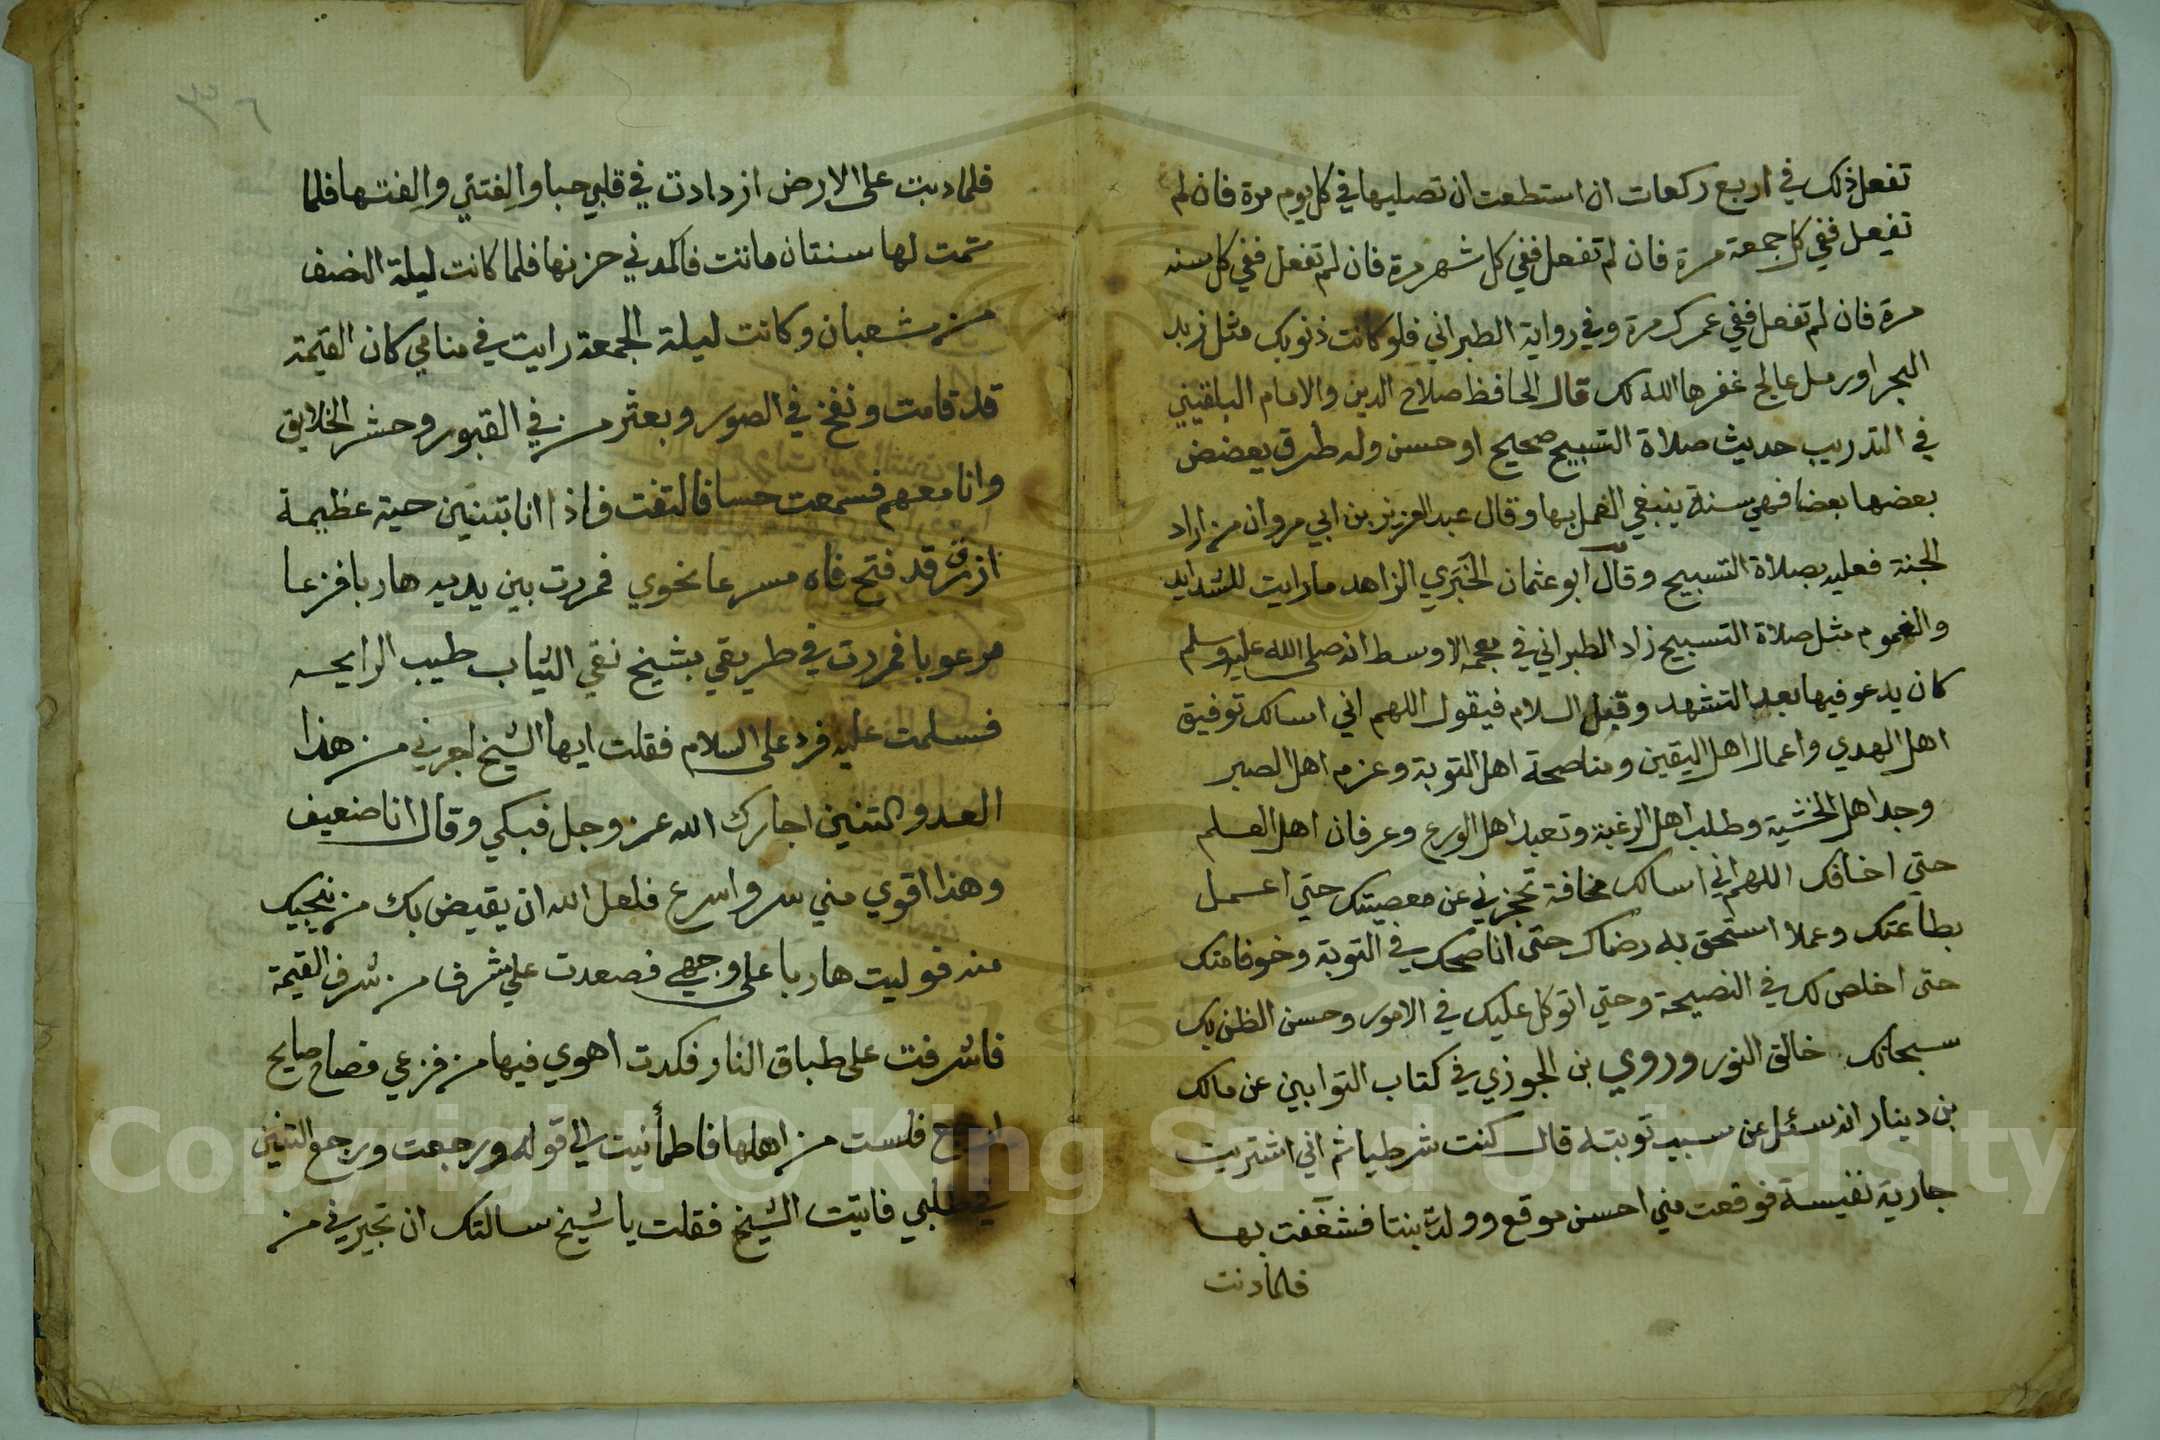 تفعل ذلك في اربع ركعات ان استطعت ان تصليها في كل يوم مرة فان لم
تفعل ففي كل جمعة مرة فان لم تفعل ففي كل شهر مرة فان لم تفعل ففي كل سنه
مرة فان لم تفعل ففي عمرك مرة وفي رواية الطبراني فلو كانت ذنوبك مثل زبد
البحر او رمل عالج غفرها الله لك قال الحافظ صلاح الدين والامام البلقيني
في التدريب حديث صلاة التسبيح صحيح او حسن وله طرق يعضض
بعضها بعضا فهي سنة ينبغي العمل بها وقال عبد العزيز بن ابي مروان من اراد
الجنة فعليه بصلاة التسبيح وقال ابو عثمان الزاهد ما رايت للشدايد
والغموم مثل صلاة التسبيح زاد الطبراني في معجمه الاوسط انه صلى الله عليه وسلم
كان يدعو فيها بعد التشهد وقبل السلام فيقول اللهم اني اسالك توفيق
اهل الهدي واعمال اهل اليقين ومناصحة اهل التوبة وعزم اهل الصبر
وجد اهل الخشية وطلب اهل الرغبة وتعبد اهل الورع وعرفان اهل العلم
حتي اخافك اللهم اني اسالك مخافة تحجزني عن معصيتك حتي اعمل
بطاعتك وعملا استحق به رضاك حتى اناصحك في التوبة وخوفا منك
حتى اخلص لك في النصيحة وحتي اتوكل عليك في الامور وحسن الظن بك
سبحانك خالق النور وروي بن الجوزي في كتاب التوابين عن مالك
بن دينار انه سئل عن سبب توبته قال كنت شرطيا ثم اني اشتريت
جارية نفيسة فوقعت مني احسن موقع وولدت بنتا فشغفت بها
فلما دبت
فلما دبت على الارض ازدادت في قلبي حبا والفتني والفتها فلما
تمت لها سنتان ماتت فاكمدني حزنها فلما كانت ليلة النصف
من شعبان وكانت ليلة الجمعة رايت في منامي كان القيمة
قد قامت ونفخ في الصور وبعثر من في القبور وحشر الخلايق
وانا معهم فسمعت حسا فالتفت فاذا انا بتنين حية عظيمة
ازرق قد فتح فاه مسرعا نحوي فمررت بين يديه هاربا فزعا
مرعوبا فمررت في طريقي بشيخ نقي الثياب طيب الرايحه
فسلمت عليه فرد على السلام فقلت ايها الشيخ اجرني من هذا
العدو التنين اجارك الله عز وجل فبكي وقال انا ضعيف
وهذا اقوي مني سر واسرع فلعل الله ان يقيض بك من ينجيك
منه فوليت هاربا على وجهي فصعدت علي شرف من شرف القيمة
فاشرفت على طباق النار فكدت اهوي فيها من فزعي فصاح صايح
ارجع فلست من اهلها فاطمأنيت الي قوله ورجعت ورجع التنين
في طلبي فاتيت الشيخ فقلت يا شيخ سالتك ان تجيرني من
Copyright © King Saud University